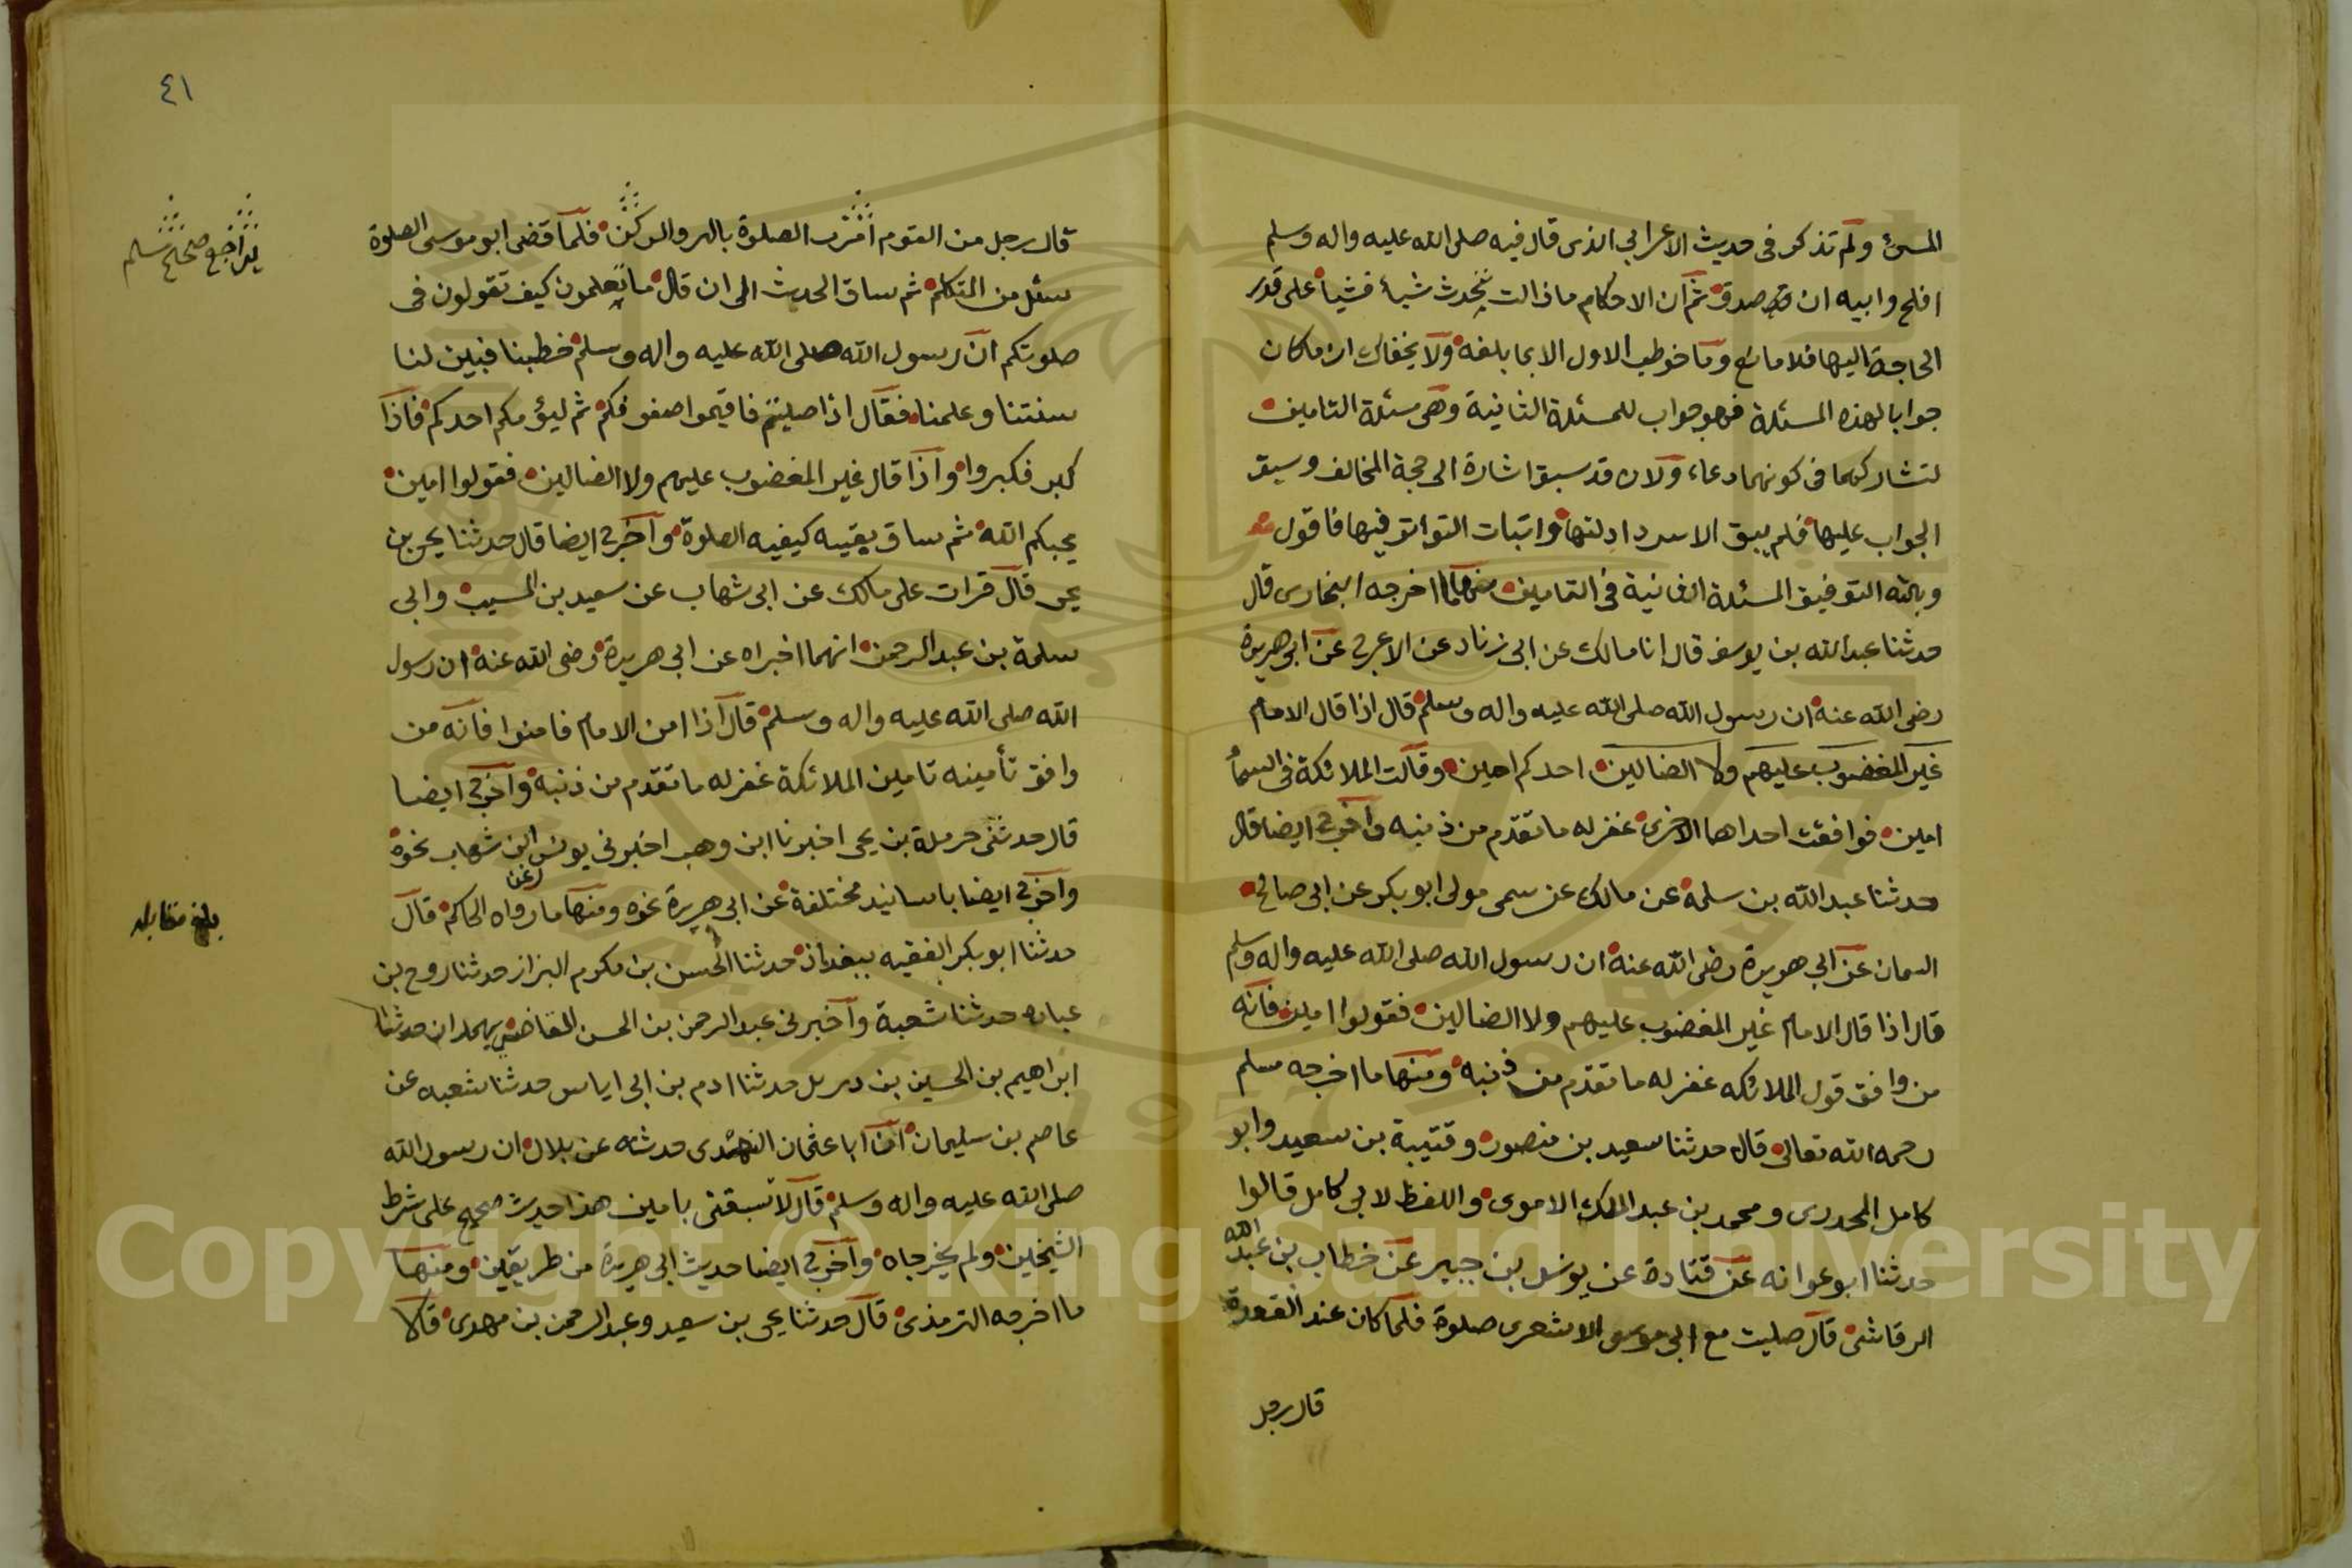 المسئ ولم تذكر فى حديث الاعرابي الذى قال فيه صلى الله عليه واله وسلم
افلح وابيه ان صدق ثم ان الاحكام مازالت تتحدث شيأ فشيأ على قدر
الحاجة اليها فلا مانع وما خوطب الاول الا بما بلغه ولا يخفاك ان ما كان
جوابا لهذه المسئلة فهو جواب للمسئلة الثانية وهى مسئلة التامين
لتشاركهما فى كونهما دعاء ولان قد سبق اشارة الى حجة المخالف وسبق
الجواب عليها فلم يبق الا سرد ادلتها واثبات التواتر فيها فاقول
وبالله التوفيق المسئلة الثانية فى التامين منها ما اخرجه البخارى قال
حدثنا عبدالله بن يوسف قال انا مالك عن ابى زناد عن الاعرج عن ابى هريرة
رضى الله عنه ان رسول الله صلى الله عليه واله وسلم قال اذا قال الامام
غير المغضوب عليهم ولا الضالين احدكم امين وقالت الملائكة فى السمأ
امين فوافقت احداهما الاخرى غفر له ما تقدم من ذنبه واخرج ايضا قال
حدثنا عبدالله بن سلمة عن مالك عن سمى مولى ابو بكر عن ابى صالح
السمان عن ابي هريرة رضى الله عنه ان رسول الله صلى الله عليه واله وسلم
قال اذا قال الامام غير المغضوب عليهم ولا الضالين فقولوا امين فانه
من وافق قول الملائكه غفر له ما تقدم من ذنبه ومنها ما اخرجه مسلم
رحمه الله تعالى قال حدثنا سعيد بن منصور وقتيبة بن سعيد وابو
كامل المحدرى ومحمد بن عبد الملك الاموى واللفظ لابي كامل قالوا
حدثنا ابو عوانه عن قتادة عن يونس بن جبير عن خطاب بن عبد الله
الرقاشى قال صليت مع ابى موسى الاشعرى صلوة فلما كان عند القعدة
قال رجل
٤١
قال رجل من القوم اقرت الصلوة بالبر والزكن فلما قضى ابو موسى الصلوة
سئل من المتكلم ثم ساق الحديث الى ان قال ما تعلمون كيف تقولون فى
صلوتكم ان رسول الله صلى الله عليه واله وسلم خطبنا فبين لنا
سنتنا وعلمنا فقال اذا صليتم فاقيموا صفوفكم ثم ليؤمكم احدكم فاذا
كبر فكبروا واذا قال غير المغضوب عليهم ولا الضالين فقولوا امين
يجبكم الله ثم ساق بقيه كيفيه الصلوة واخرج ايضا قال حدثنا يحي بن
يحي قال قرات على مالك عن ابى شهاب عن سعيد بن المسيب وابى
سلمة بن عبد الرحمن انهما اخبراه عن ابي هريرة رضى الله عنه ان رسول
الله صلى الله عليه واله وسلم قال اذا امن الامام فامنوا فانه من
وافق تأمينه تامين الملائكة غفر له ما تقدم من ذنبه واخرج ايضا
قال حدثنى حرملة بن يحى اخبرنا ابن وهب اخبرنى يونس عن ابن شهاب نحوه
واخرج ايضا باسانيد مختلفة عن ابى هريرة نحوه ومنها ما رواه الحاكم قال
حدثنا ابو بكر الفقيه ببغداد حدثنا الحسن بن مكرم البزاز حدثنا روح بن
عباده حدثنا شعبة واخبرنى عبد الرحمن بن الحسن القاضى بهمدان حدثنا
ابراهيم بن الحسين بن ديزيل حدثنا ادم بن ابى اياس حدثنا شعبه عن
عاصم بن سليمان ان ابا عثمان النهدى حدثنا عن بلال ان رسول الله
صلى الله عليه واله وسلم قال لا تسبقنى بامين هذا حديث صحيح على شرط
الشيخين ولم يخرجاه واخرج ايضا حديث ابى هريرة من طريقين ومنها
ما اخرجه الترمذى قال حدثنا يحى بن سعيد وعبد الرحمن بن مهدى قالا
يراجع صحيح مسلم
بلغ مقابله
Copyright © King Saud University
1957